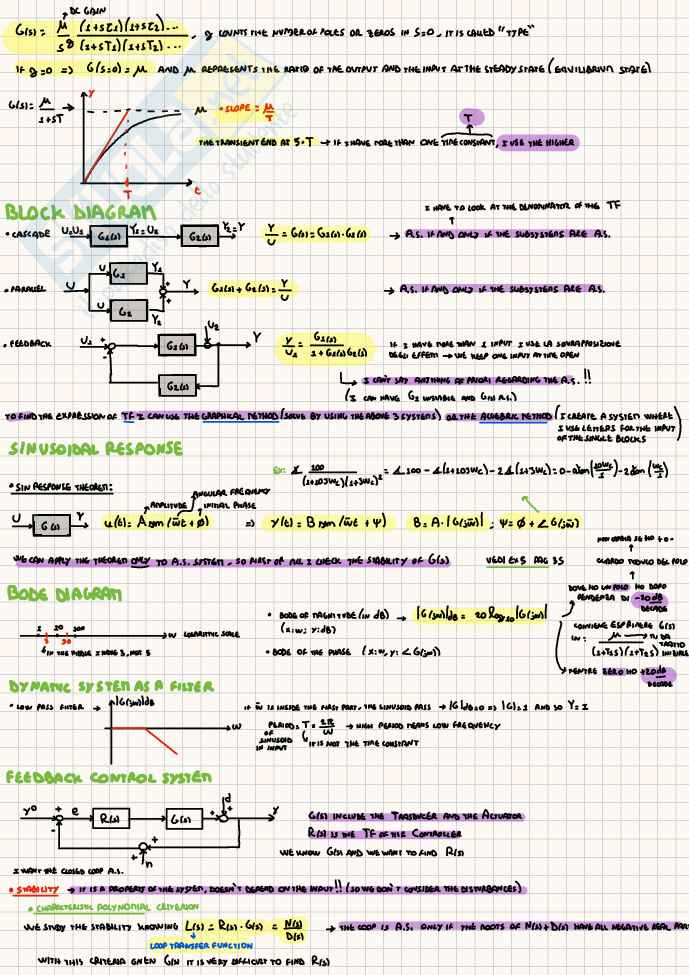 DC GAIN
G(s) = μ/s^g (1+sτ1)(1+sτ2)... / (1+sT1)(1+sT2)... , g COUNTS THE NUMBER OF POLES OR ZEROS IN S=0. IT IS CALLED "TYPE"
IF g=0 => G(s=0) = μ AND μ REPRESENTS THE RATIO OF THE OUTPUT AND THE INPUT AT THE STEADY STATE (EQUILIBRIUM STATE)
G(s) = μ/1+sT → Y μ • SLOPE = μ/T
T
THE TRANSIENT END AT 5·T → IF I HAVE MORE THAN ONE TIME CONSTANT, I USE THE HIGHER
T t
BLOCK DIAGRAM
I HAVE TO LOOK AT THE DENOMINATOR OF THE TF
• CASCADE U=U1 G1(s) Y1=U2 G2(s) Y2=Y Y/U = G(s) = G1(s)·G2(s) → A.S. IF AND ONLY IF THE SUBSYSTEMS ARE A.S.
• PARALLEL U U G1 Y1 U G2 Y2 + + Y G1(s) + G2(s) = Y/U → A.S. IF AND ONLY IF THE SUBSYSTEMS ARE A.S.
• FEEDBACK U1 + - G1(s) U2 Y G2(s) Y/U1 = G1(s) / 1+G1(s)G2(s) IF I HAVE MORE THAN 1 INPUT I USE LA SOVRAPPOSIZIONE
DEGLI EFFETTI → WE KEEP ONE INPUT AT TIME OPEN
I CAN'T SAY ANYTHING A PRIORI REGARDING THE A.S. !!
TO FIND THE EXPRESSION OF TF I CAN USE THE GRAPHICAL METHOD (SOLVE BY USING THE ABOVE 3 SYSTEMS) OR THE ALGEBRIC METHOD (I CREATE A SYSTEM WHERE
I USE LETTERS FOR THE INPUT
OF THE SINGLE BLOCKS)
SINUSOIDAL RESPONSE
• SIN RESPONSE THEOREM:
AMPLITUDE
ANGULAR FREQUENCY
INITIAL PHASE
U G(s) Y u(t) = A sin(w̄t + φ) => Y(t) = B sin(w̄t + ψ) B = A·|G(jw̄)| ; ψ = φ + ∠G(jw̄)
WE CAN APPLY THE THEOREM ONLY TO A.S. SYSTEM, SO FIRST OF ALL I CHECK THE STABILITY OF G(s) VEDI EX 5 PAG 35
BODE DIAGRAM
W LOGARITMIC SCALE
• BODE OF MAGNITUDE (IN dB) → |G(jw)|dB = 20 log10 |G(jw)|
(X: w; Y: dB)
• BODE OF THE PHASE (X: w, Y: ∠G(jw))
GUARDO TRONCO DEL POLO
DOVE HO UN POLO HO DOPO
PENDENZA DI -20 dB/DECADE
CONVIENE ESPRIMERE G(s)
IN: μ / (1+T1s)(1+T2s)
MENTRE ZERO HO +20dB/DECADE
DYNAMIC SYSTEM AS A FILTER
• LOW PASS FILTER → |G(jw)|dB W
IF w̄ IS INSIDE THE FIRST PART, THE SINUSOID PASS → |G|dB=0 => |G|=1 AND SO Y=1
PERIOD: T = 2π/w → HIGH PERIOD MEANS LOW FREQUENCY
OF SINUSOID IN INPUT
IT IS NOT THE TIME CONSTANT
FEEDBACK CONTROL SYSTEM
Y° + - e R(s) G(s) d + + Y
+ + n
G(s) INCLUDE THE TRASDUCER AND THE ACTUATOR
R(s) IS THE TF OF THE CONTROLLER
WE KNOW G(s) AND WE WANT TO FIND R(s)
I WANT THE CLOSED LOOP A.S.
• STABILITY → IT IS A PROPERTY OF THE SYSTEM, DOESN'T DEPEND ON THE INPUT!! (SO WE DON'T CONSIDER THE DISTURBANCES)
• CHARACTERISTIC POLYNOMIAL CRITERION
WE STUDY THE STABILITY KNOWING L(s) = R(s)·G(s) = N(s)/D(s) → THE LOOP IS A.S. ONLY IF THE ROOTS OF N(s)+D(s) HAVE ALL NEGATIVE REAL PART
LOOP TRANSFER FUNCTION
WITH THIS CRITERIA GIVEN G(s) IT IS VERY DIFFICULT TO FIND R(s)